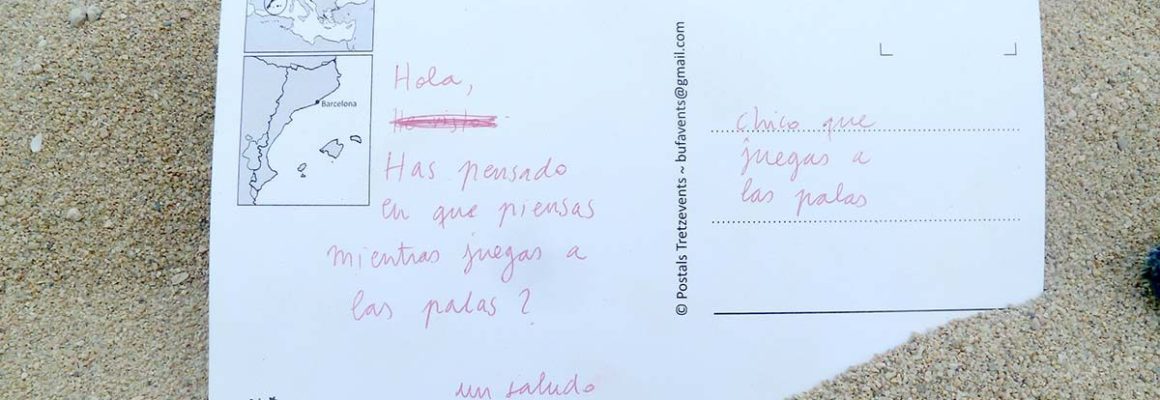 Barcelona
Hola,
Has pensado
en que piensas
mientras juegas a
las palas?
un saludo
© Postals Tretzevents ~ bufavents@gmail.com
chico que
juegas a
las palas